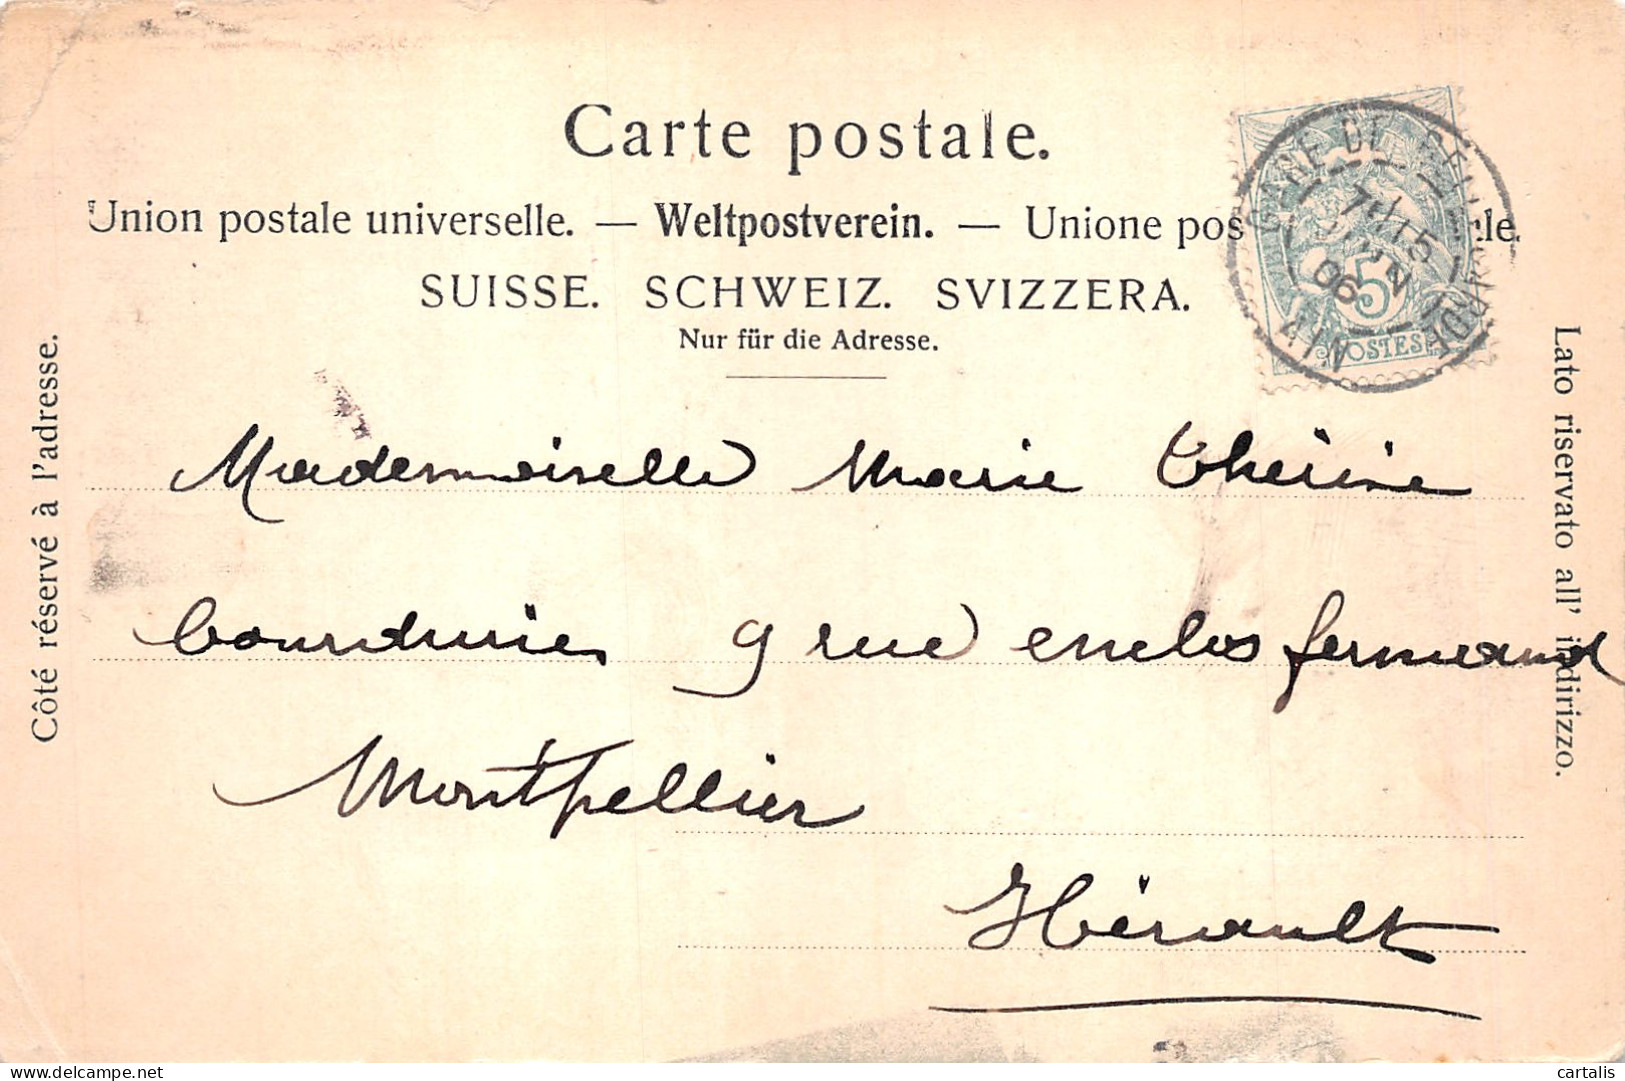 Carte postale.
Union postale universelle. — Weltpostverein. — Unione pos rle.
SUISSE. SCHWEIZ. SVIZZERA.
Nur für die Adresse.
Côté réservé à l'adresse.
Lato riservato all' indirizzo.
GARE DE
7
15
JUIN
06
AIN
5
POSTES
Mademoiselle Marie Thérèse
9 rue enclos fermeaud
Montpellier
Hérault
delcampe.net
cartalis